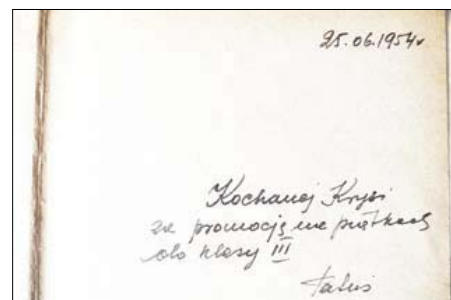 25.06.1954r
Kochanej Krysi
za promocję na piątkach
do klasy III
Tatuś